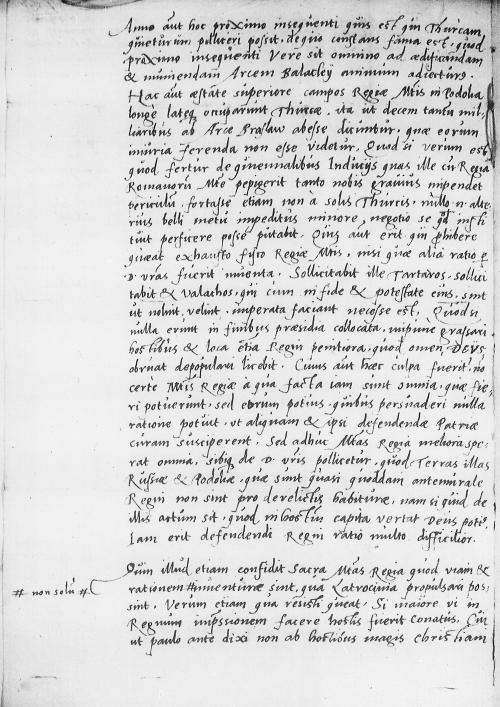 Anno aut hoc proximo insequenti quis est qui Thurcam
quieturum polliceri possit, de quo constans fama est, quod
proximo insequenti Vere sit omnino ad ædificandam
& muniendam Arcem Balacley animum adiecturus.
Hac aut æstate superiore campos Regiæ Mtis in Podolia
longe lateq occuparunt Thurcæ, ita ut decem tantu mil-
liaribus ab Arce Braslaw abesse dicuntur, quæ eorum
iniuria ferenda non esse videtur. Quod si verum est
quod fertur de quinennalibus Inducijs quas ille cu Regia
Romanoru Mte pepigerit tanto nobis gravius impendet
periculu, fortasse etiam non à solis Thurcis, nullo n. alte-
rius belli metu impeditus minore, negotio se qd insti
tuit perficere posse putabit. Quis aut erit qui phibere
queat exhausto fisco Regiæ Mtis, nisi quæ alia ratio p
D. vras fuerit inventa. Sollicitabit ille Tartaros, sollici
tabit & Valachos, qui cum in fide & potestate eius sint
ut nolint, velint, imperata faciant necesse est. Quod si
nulla erunt in finibus præsidia collocata, impune grassari
hostibus & loca etia Regni penitiora, quod omen DEVS
obruat depopulari licebit. Cuius aut hæc culpa fuerit, no
certe Mtis Regiæ à qua facta iam sunt omnia, quæ fie-
ri potuerunt, sed eorum potius, quibus persuaderi nulla
ratione potuit, ut aliquam & ipsi defendendæ Patriæ
curam susciperent. Sed adhuc Mtas Regia meliora spe-
rat omnia, sibiq de D. vris pollicetur, quod Terras illas
Russiæ & Podoliæ, quæ sunt quasi quoddam antemurale
Regni non sint pro derelictis habituræ, nam si quid de
illis actum sit, quod in hostiu capita vertat Deus potius
Iam erit defendendi Regni ratio multo difficilior.
Quin illud etiam confidit Sacra Mtas Regia quod viam &
# non solu # rationem # inventuræ sint, qua Latrocinia propulsari pos-
sint, Verum etiam qua resisti queat, Si maiore vi in
Regnum impssionem facere hostis fuerit conatus. Cui
ut paulo ante dixi non ab hostibus magis Christiam